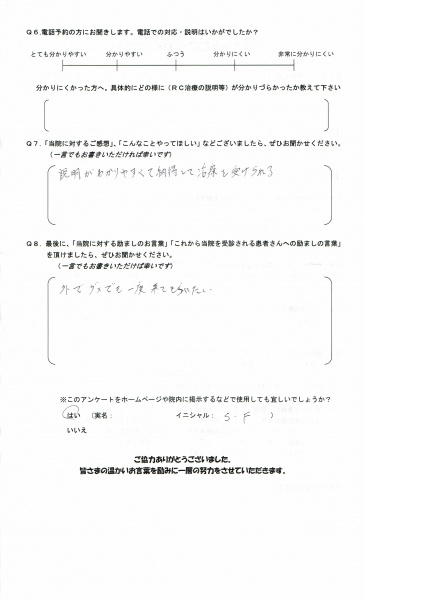 Ｑ６.電話予約の方にお聞きします。電話での対応・説明はいかがでしたか？
とても分かりやすい　分かりやすい　ふつう　分かりにくい　非常に分かりにくい
分かりにくかった方へ。具体的にどの様に（ＲＣ治療の説明等）が分かりづらかったか教えて下さい
Ｑ７.「当院に対するご感想」、「こんなことやってほしい」などございましたら、ぜひお聞かせください。
（一言でもお書きいただければ幸いです）
説明がわかりやすくて納得して治療を受けられる
Ｑ８．最後に、「当院に対する励ましのお言葉」「これから当院を受診される患者さんへの励ましの言葉」
を頂けましたら、ぜひお聞かせください。
（一言でもお書きいただけば幸いです）
外でダメでも一度来てもらいたい
※このアンケートをホームページや院内に掲示するなどで使用しても宜しいでしょうか？
はい　（実名：　イニシャル：　S．F　）
いいえ
ご協力ありがとうございました。
皆さまの温かいお言葉を励みに一層の努力をさせていただきます。